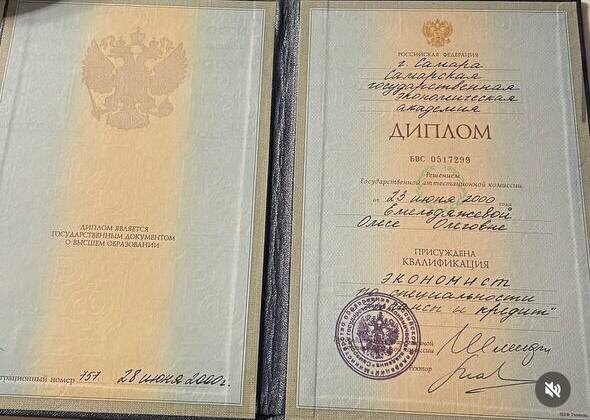 ДИПЛОМ ЯВЛЯЕТСЯ
ГОСУДАРСТВЕННЫМ ДОКУМЕНТОМ
О ВЫСШЕМ ОБРАЗОВАНИИ
номер 757 28 июня 2000г.
РОССИЙСКАЯ ФЕДЕРАЦИЯ
г. Самара
Самарская
государственная
экономическая
академия
ДИПЛОМ
БВС 0517299
Решением
Государственной аттестационной комиссии
от 23 июня 2000 года
Олесе Олеговне
ПРИСУЖДЕНА
КВАЛИФИКАЦИЯ
ЭКОНОМИСТ
по специальности
и кредит"